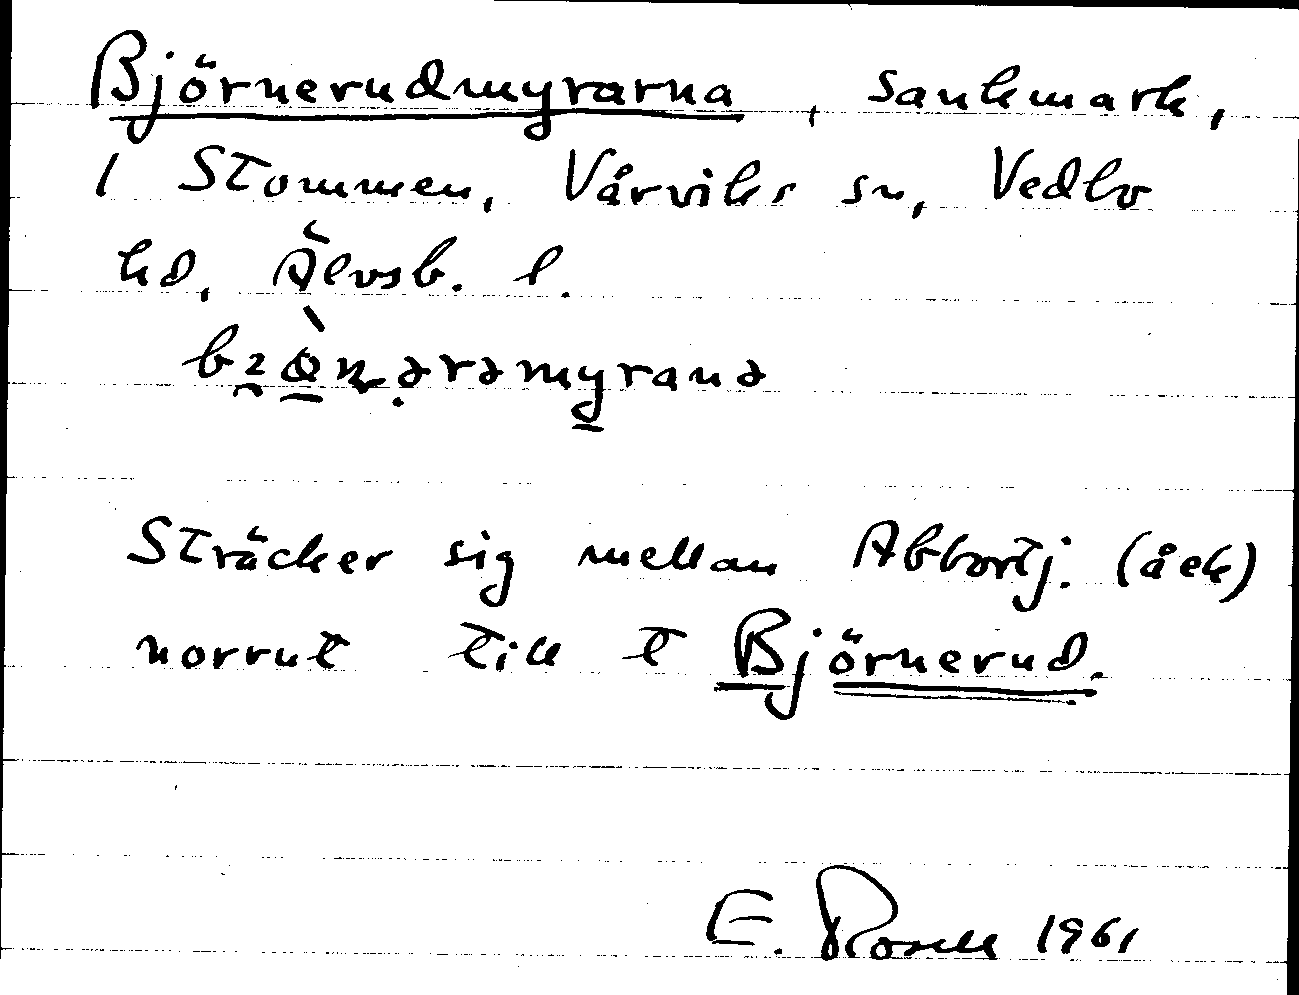 Björnerudmyrarna, sankmark,
1 Stommen, Vårviks sn, Vedbo
hd, Älvsb. l.
Sträcker sig mellan Abbortj. (åek)
norrut till t Björnerud.
E. Rosell 1961